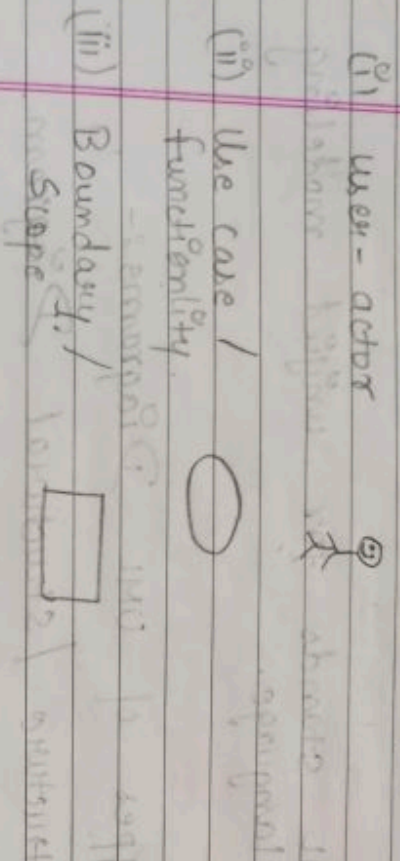 (i) user - actor
(ii) Use case /
functionlity.
(iii) Boundary /
Scope